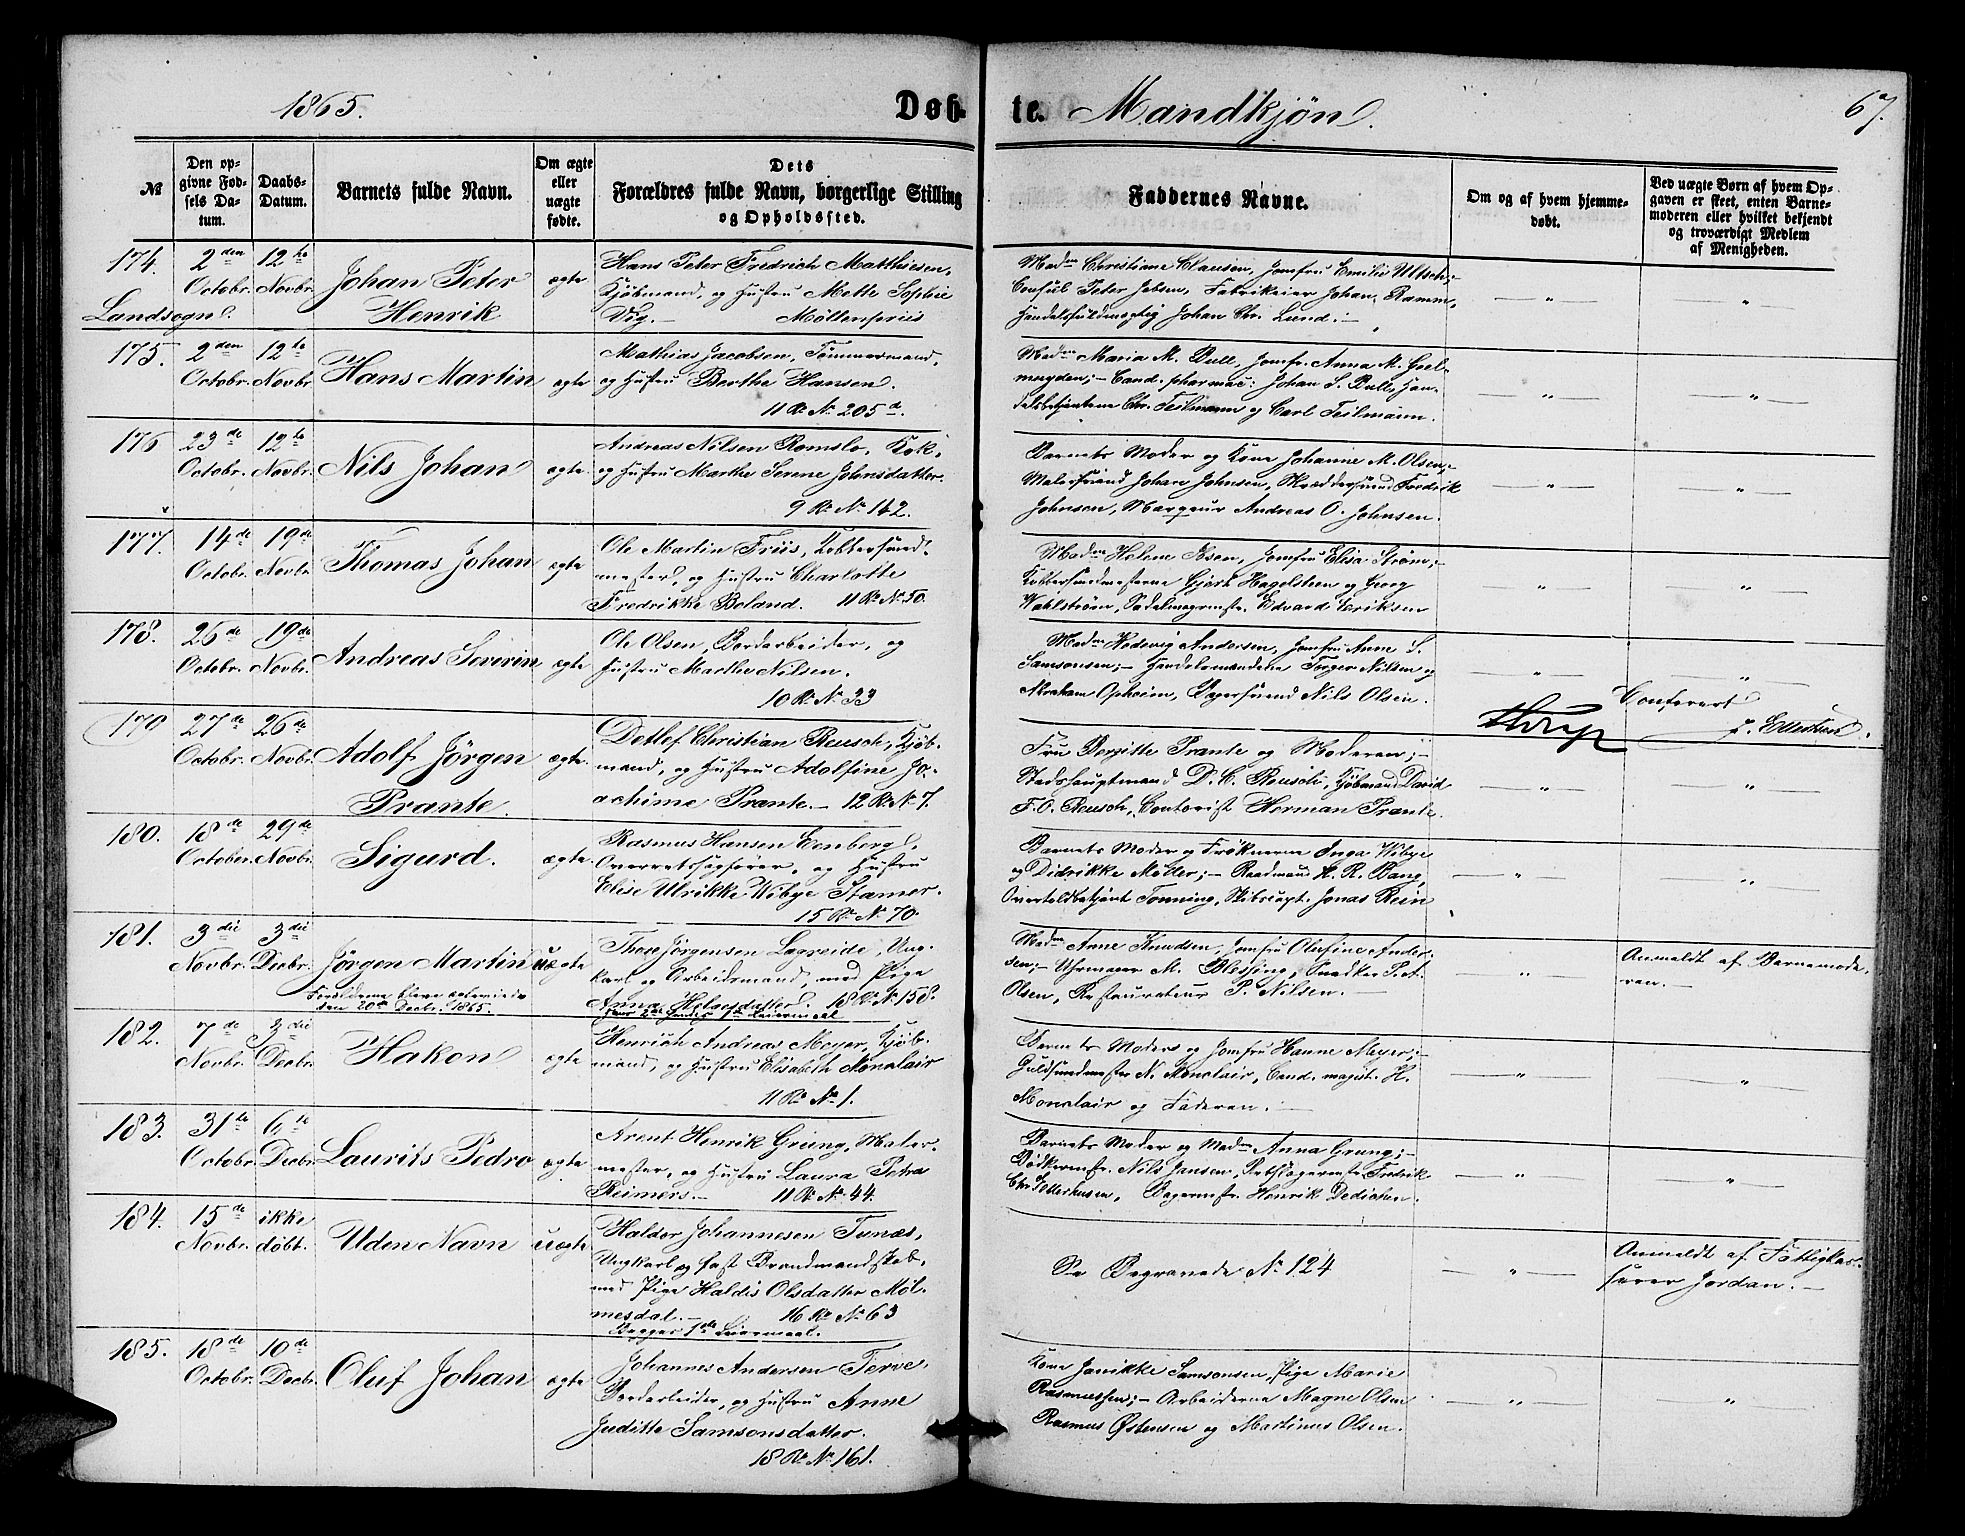 1865.
Døb- te. Mandkjøn.
67.
№
Den op-
givne Fød-
sels Da-
tum.
Daabs-
Datum.
Barnets fulde Navn.
Om ægte
eller
uægte
fødte.
Dets
Forældres fulde Navn, borgerlige Stilling
og Opholdssted.
Faddernes Navne.
Om og af hvem hjemme-
døbt.
Ved uægte Børn af hvem Op-
gaven er skeet, enten Barne-
moderen eller hvilket bekjendt
og troværdigt Medlem
af Menigheden.
174.
Landsogn.
2den
Octobr.
12te
Novbr.
Johan Peter
Henrik
ægte
Hans Peter Fredrich Matthiesen,
Kjøbmand, og Hustru Mette Sophie
Vig. — Møllenpriis
Madme Christiane Clausen, Jomfru Emilie Ultsch;—
Consul Peter Jebsen, Fabrikeier Johan Ramm,
Handelsfuldmægtig Johan Chr. Lund.—
175.
2den
Octobr.
12te
Novbr.
Hans Martin
ægte
Mathias Jacobsen, Tømmermand,
og Hustru Berthe Hansen.
11 R. N. 205 d.
Madme Maria M. Bull, Jomfr. Anna M. Geel-
muyden;— Cand. pharmac: Johan S. Bull, Han-
delsbetjentene Chr. Teilmann og Carl Teilmann.
176
23de
Octobr.
12te
Novbr.
Nils Johan
ægte.
Andreas Nilsen Romslo, Kok,
og Hustru Marthe Serene Johnsdatter.
9 R. N. 162.
Barnets Moder og Kone Johanne M. Olsen;—
Malersvend Johan Johnsen, Skræddersvend Fredrik
Johnsen, Margeur Andreas O. Johnsen.
177.
14de
Octobr.
19de
Novbr.
Thomas Johan
ægte
Ole Martin Friis, Kobbersmed-
mester, og Hustru Charlotte
Fredrikke Boland. 11 R. N. 50.
Madme Helene Ibsen, Jomfru Elisa Strøm;—
Kobbersmedmesterne Gjert Hagelsteen og Georg
Wahlstrøm, Sadelmagermstr. Edvard Eriksen
178.
26de
Octobr.
19de
Novbr.
Andreas Severin
ægte
Ole Olsen, Bordarbeider, og
Hustru Marthe Nilsen.
10 R. N. 33
Madme Hedevig Andersen, Jomfru Anne S.
Samsonsen;— Handelsmændene Torger Nilsen og
Abraham Opheim, Bagersvend Nils Olsen.
Confereret
179
27de
Octobr.
26de
Novbr.
Adolf Jörgen
Prante.
ægte.
Detlef Christian Reusch, Kjøb-
mand, og Hustru Adolfine Jo-
achime Prante.— 12 R. N. 7.
Fru Bergitte Prante og Moderen;—
Stadshauptmand D. C. Reusch, Kjøbmand David
F. O. Reusch, Contorist Herman Prante.
180.
18de
Octobr.
29de
Novbr.
Sigurd.
ægte.
Rasmus Hansen Eenberg,
Overretssagfører, og Hustru
Elise Ulrikke Wibye Stamer.
15 R. N. 70.
Barnets Moder og Frøknerne Inga Wibye
og Didrikke Møller;— Raadmand H. R. Bang,
Overtoldbetjent Tønning, Skibscapt. Jonas Rein
181.
3die
Novbr.
3die
Decbr.
Jörgen Martin
Forældrene bleve copulerede
den 20de Decbr. 1865.
uægte
Thore Jörgensen Lagreide, Ung-
karl og Arbeidsmand, med Pige
Anna Helgesdatter. 18 R. N. 158.
Hans 2det Hendes 1ste Leiermaal
Madme Anne Knudsen, Jomfru Olufine Ander-
sen;— Uhrmager M. Blessing, Snedker P. A.
Olsen, Restaurateur P. Nilsen.—
Anmeldt af Barnemode-
ren.—
182.
7de
Novbr.
3die
Decbr.
Hakon
ægte
Henrich Andreas Meyer, Kjøb-
mand, og Hustru Elisabeth Monclair
11 R. N. 1.
Barnets Moder og Jomfru Hanne Meyer;—
Guldsmedmester N. Monclair, Cand. magist. H.
Monclair og Faderen.—
183.
31te
Octobr.
6te
Decbr.
Laurits Pedro
ægte
Arent Henrik Grung, Maler-
mester, og Hustru Laura Petra
Reimers.— 11 R. N. 44.
Barnets Moder og Madme Anna Grung;—
Bødkermstr. Nils Jansen, Rebslagermstr. Fredrik
Chr. Ellerhusen, Bagermstr. Henrik Dedichen.
184.
15de
Novbr.
ikke
døbt.
Uden Navn
uægte
Haldor Johannesen Tunæs,
Ungkarl og fast Brandmandskab,
med Pige Haldis Olsdatter Møl-
mesdal.— 16 R. N. 63
Begges 1ste Leiermaal.
Se Begravede N. 124
Anmeldt af Fattigkas-
serer Jordan.—
185.
18de
Octobr.
10de
Decbr.
Oluf Johan
ægte
Johannes Andersen Terve,
Bordarbeider, og Hustru Anne
Juditte Samsonsdatter.
18 R. N. 161.
Kone Janikke Samsonsen, Pige Marie
Rasmussen;— Arbeiderne Magne Olsen
Rasmus Østensen og Martinus Olsen.